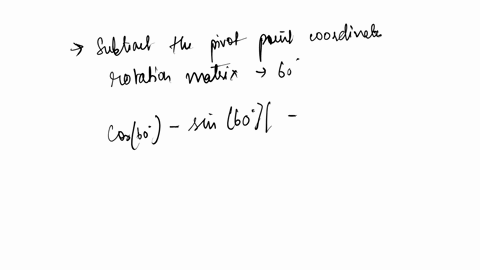 → Subtract the pivot point coordinate
rotation matrix → 60°
cos(60°) - sin (60°)[ -